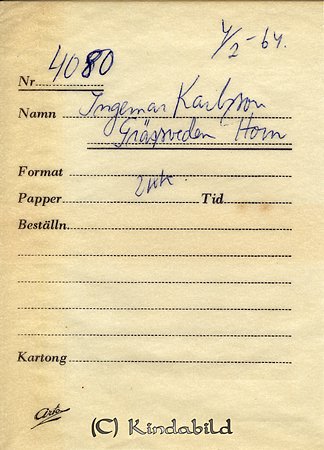 4/2-64.
Nr 4080
Namn Ingemar Karlsson
Grässveden Horn
Format
Papper Tid
Beställn.
Kartong
(C) Kindabild